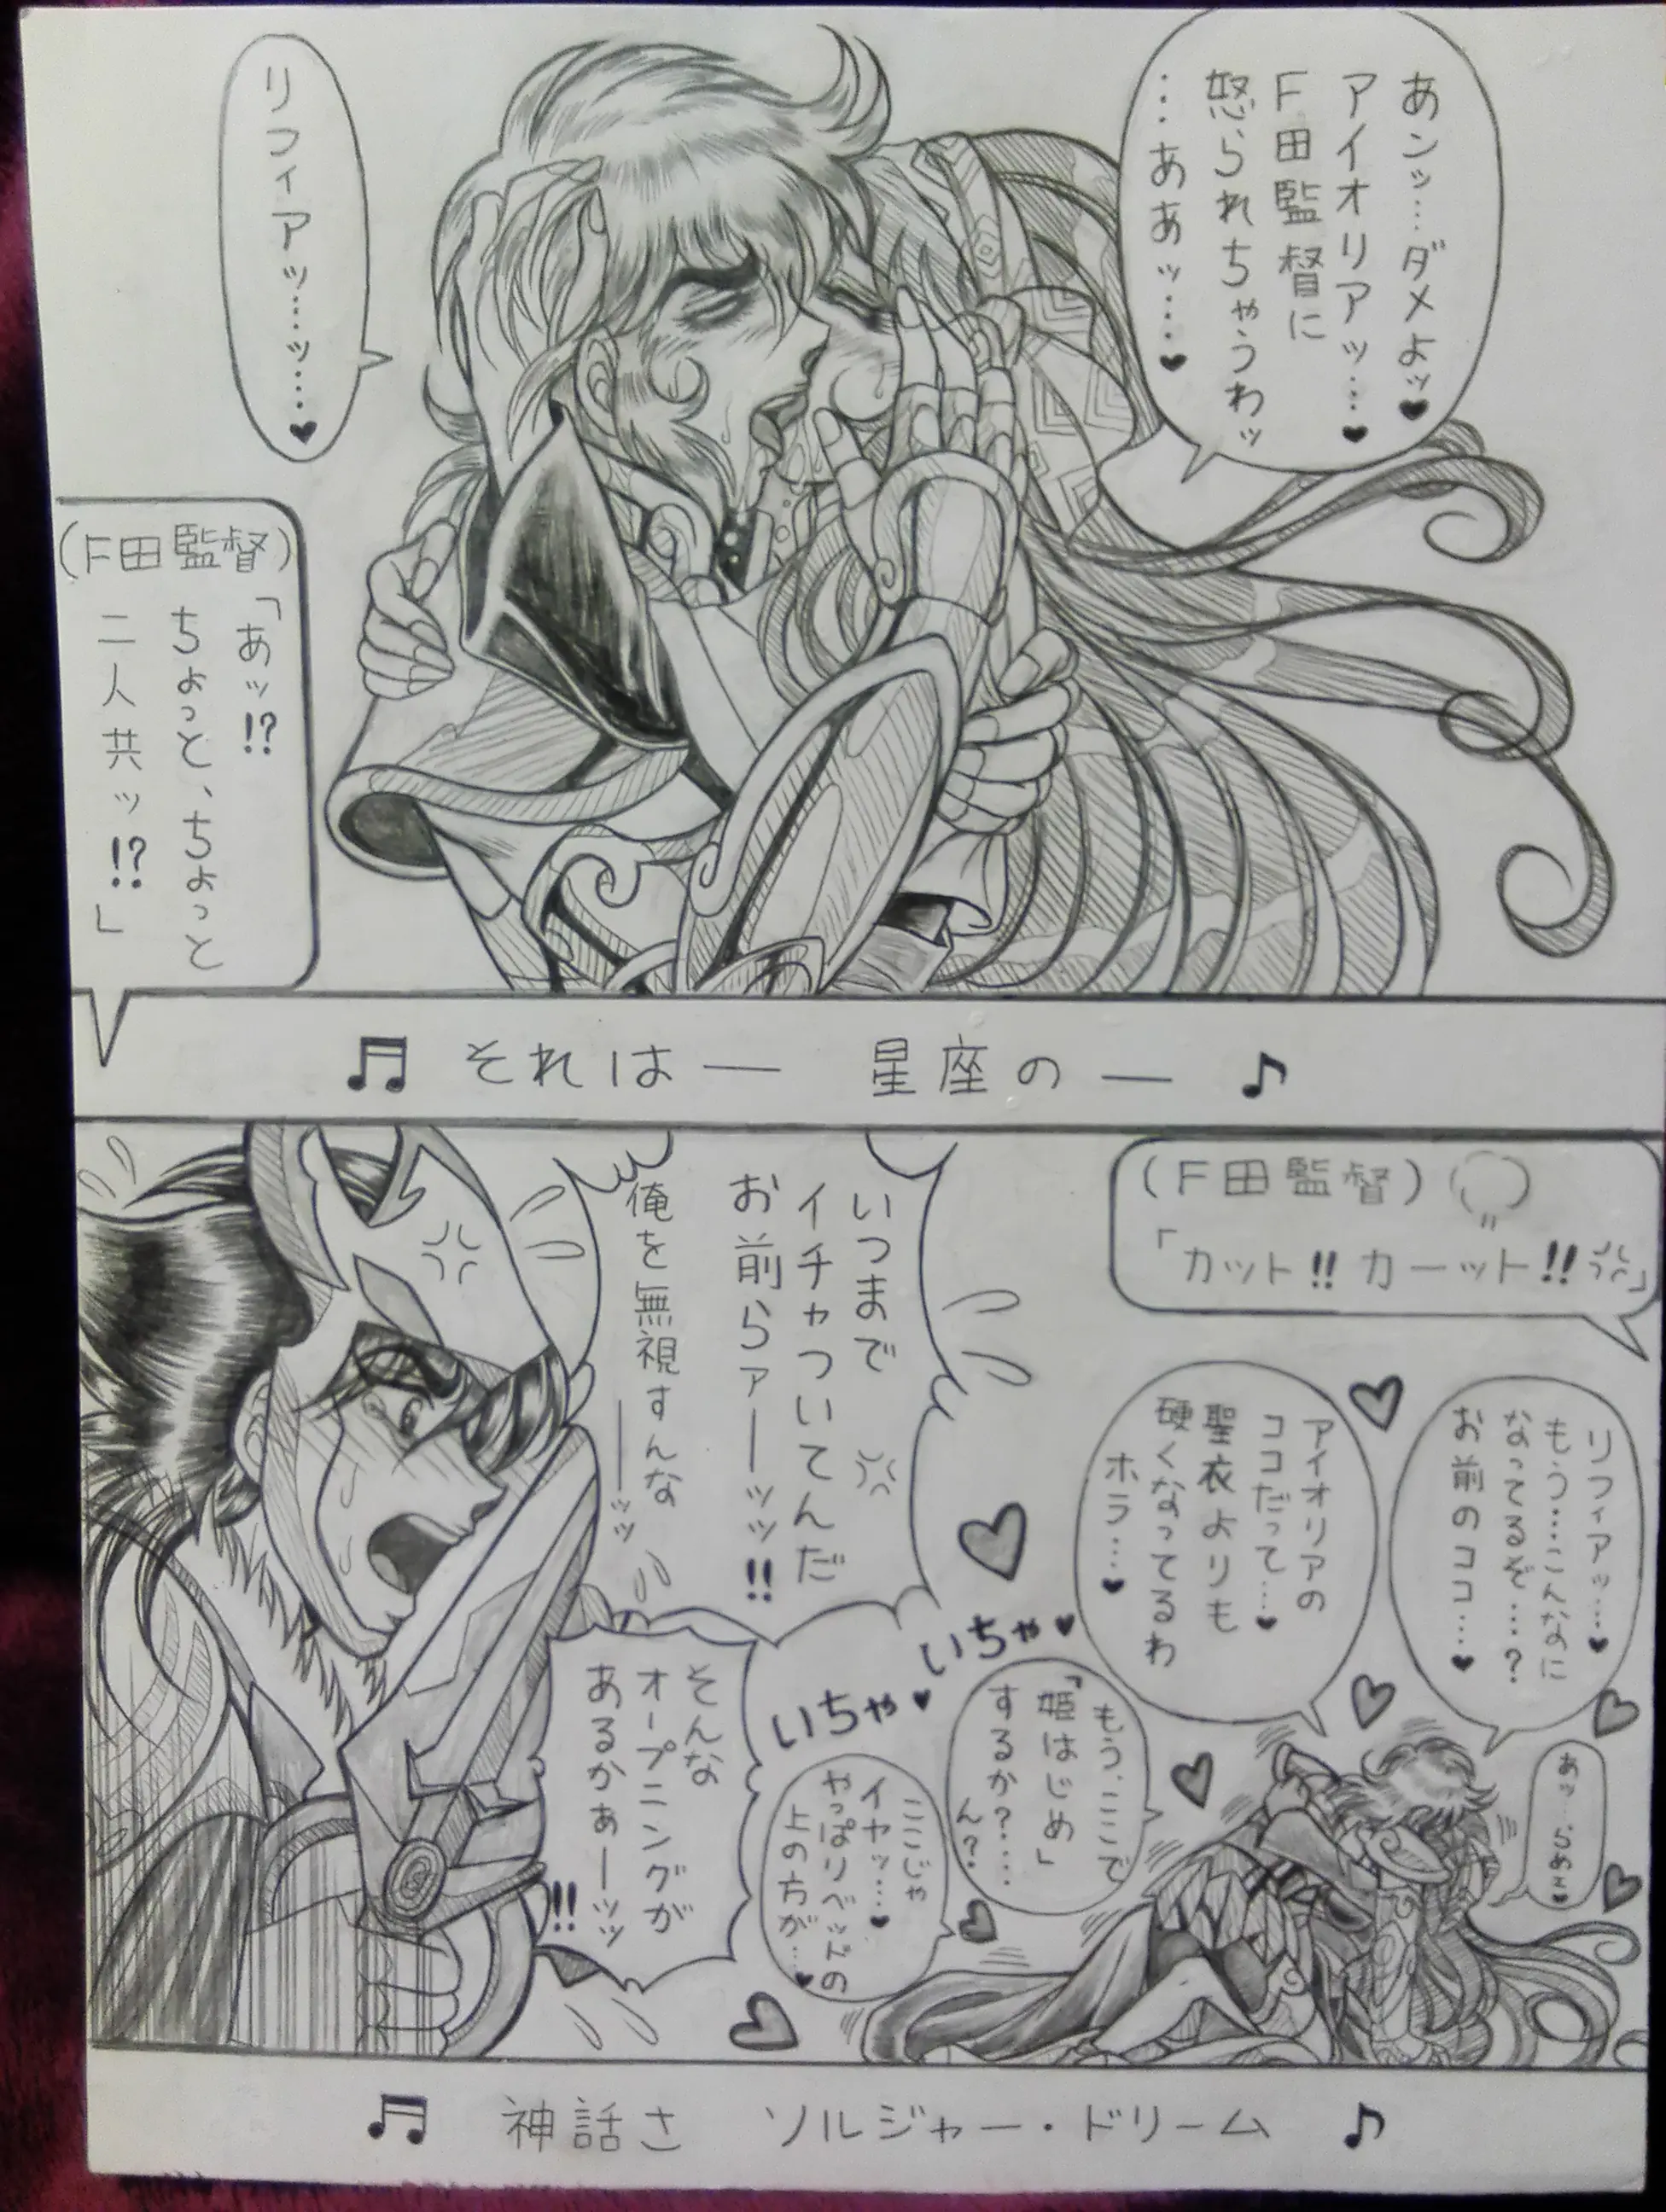 あンッ…ダメよッ♥
アイオリアッ…♥
F田監督に
怒られちゃうわッ
…ああッ…♥
リフィアッ…ッ…♥
(F田監督)
「あッ!?
ちょっと、ちょっと
二人共ッ!?」
♬ それは― 星座の― ♪
(F田監督)
「カット!! カーット!!」
リフィアッ…♥
もう…こんなに
なってるぞ…?
お前のココ…♥
アイオリアの
ココだって…♥
聖衣よりも
硬くなってるわ
ホラ…♥
あッ…らめぇ♥
もう、ここで
「姫はじめ」
するか?……
ん?
ここじゃ
イヤッ…♥
やっぱりベッドの
上の方が…♥
いちゃ♥
いちゃ♥
いつまで
イチャついてんだ
お前らァーーッッ!!
俺を無視すんな
――ッッ
そんな
オープニングが
あるかぁーッッ
!!
♬ 神話さ ソルジャー・ドリーム ♪